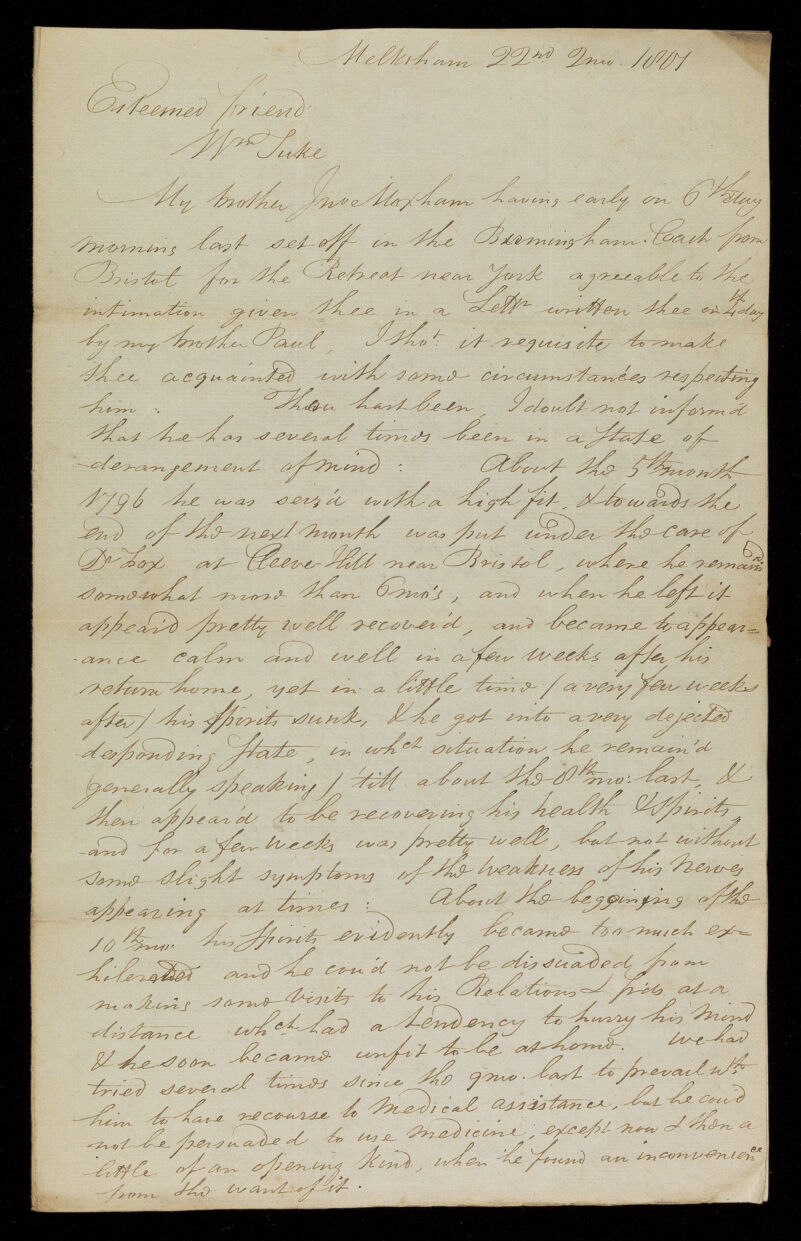 Melksham 22nd 2mo. 1801
Esteemed friend
Wm Tuke
My brother Jno Moxham having early on 6th day
morning last set off in the Birmingham Coach from
Bristol for the Retreat near York agreeable to the
intimation given thee in a Lettr written thee on 4th day
by my brother Paul, I thot. it requisite to make
thee acquainted with some circumstances respecting
him : Thou hast been, I doubt not inform'd
that he has several times been in a State of
derangement of mind : About the 5th month
1796 he was seiz'd with a high fit, & towards the
end of the next month was put under the care of
Dr Fox at Cleeve Hill near Bristol, where he remain'd
somewhat more than 6 mo's, and when he left it
appear'd pretty well recover'd, and became to appear=
-ance calm and well in a few weeks after his
return home, yet in a little time (a very few weeks
after) his Spirits sunk, & he got into a very dejected
desponding State, in whch situation he remain'd
(generally speaking) 'till about the 8th mo: last, &
then appear'd to be recovering his health & spirits,
and for a few weeks was pretty well, but not without
some slight symptoms of the weakness of his Nerves
appearing at times : About the beginning of the
10th mo. his Spirits evidently became too much ex=
hilerated and he cou'd not be dissuaded from
making some visits to his Relations & frds at a
distance whch had a tendency to hurry his mind
& he soon became unfit to be at home. We had
tried several times since the 9mo. last to prevail wth
him to have recourse to Medical assistance, but he cou'd
not be persuaded to use medicine, except now & then a
little of an opening kind, when he found an inconvenience
from the want of it.